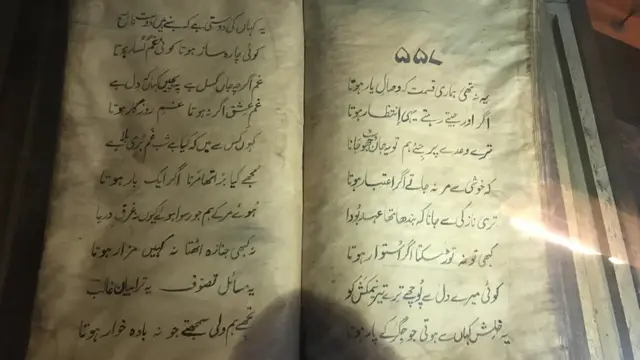 ۵۵۷
یہ نہ تھی ہماری قسمت کہ وصال یار ہوتا
اگر اور جیتے رہتے یہی اِنتظار ہوتا
ترے وعدے پر جئے ہم تو یہ جان جھوٹ جانا
کہ خوشی سے مر نہ جاتے اگر اعتبار ہوتا
تری نازکی سے جانا کہ بندھا تھا عہد بودا
کبھی تو نہ توڑ سکتا اگر اُستوار ہوتا
کوئی میرے دل سے پُوچھے ترے تیرِ نیمکش کو
یہ خلش کہاں سے ہوتی جو جگر کے پار ہوتا
یہ کہاں کی دوستی ہے کہ بنے ہیں دوست ناصح
کوئی چارہ ساز ہوتا کوئی غمگسار ہوتا
غم اگرچہ جاں گسل ہے پہ بچیں کہاں کہ دل ہے
غمِ عشق اگر نہ ہوتا غمِ روزگار ہوتا
کہوں کس سے میں کہ کیا ہے شبِ غم بُری بلا ہے
مجھے کیا بُرا تھا مرنا اگر ایک بار ہوتا
ہُوئے مر کے ہم جو رسوا ہوئے کیوں نہ غرقِ دریا
نہ کبھی جنازہ اٹھتا نہ کہیں مزار ہوتا
یہ مسائلِ تصوّف یہ ترا بیان غالبؔ
تجھے ہم ولی سمجھتے جو نہ بادہ خوار ہوتا